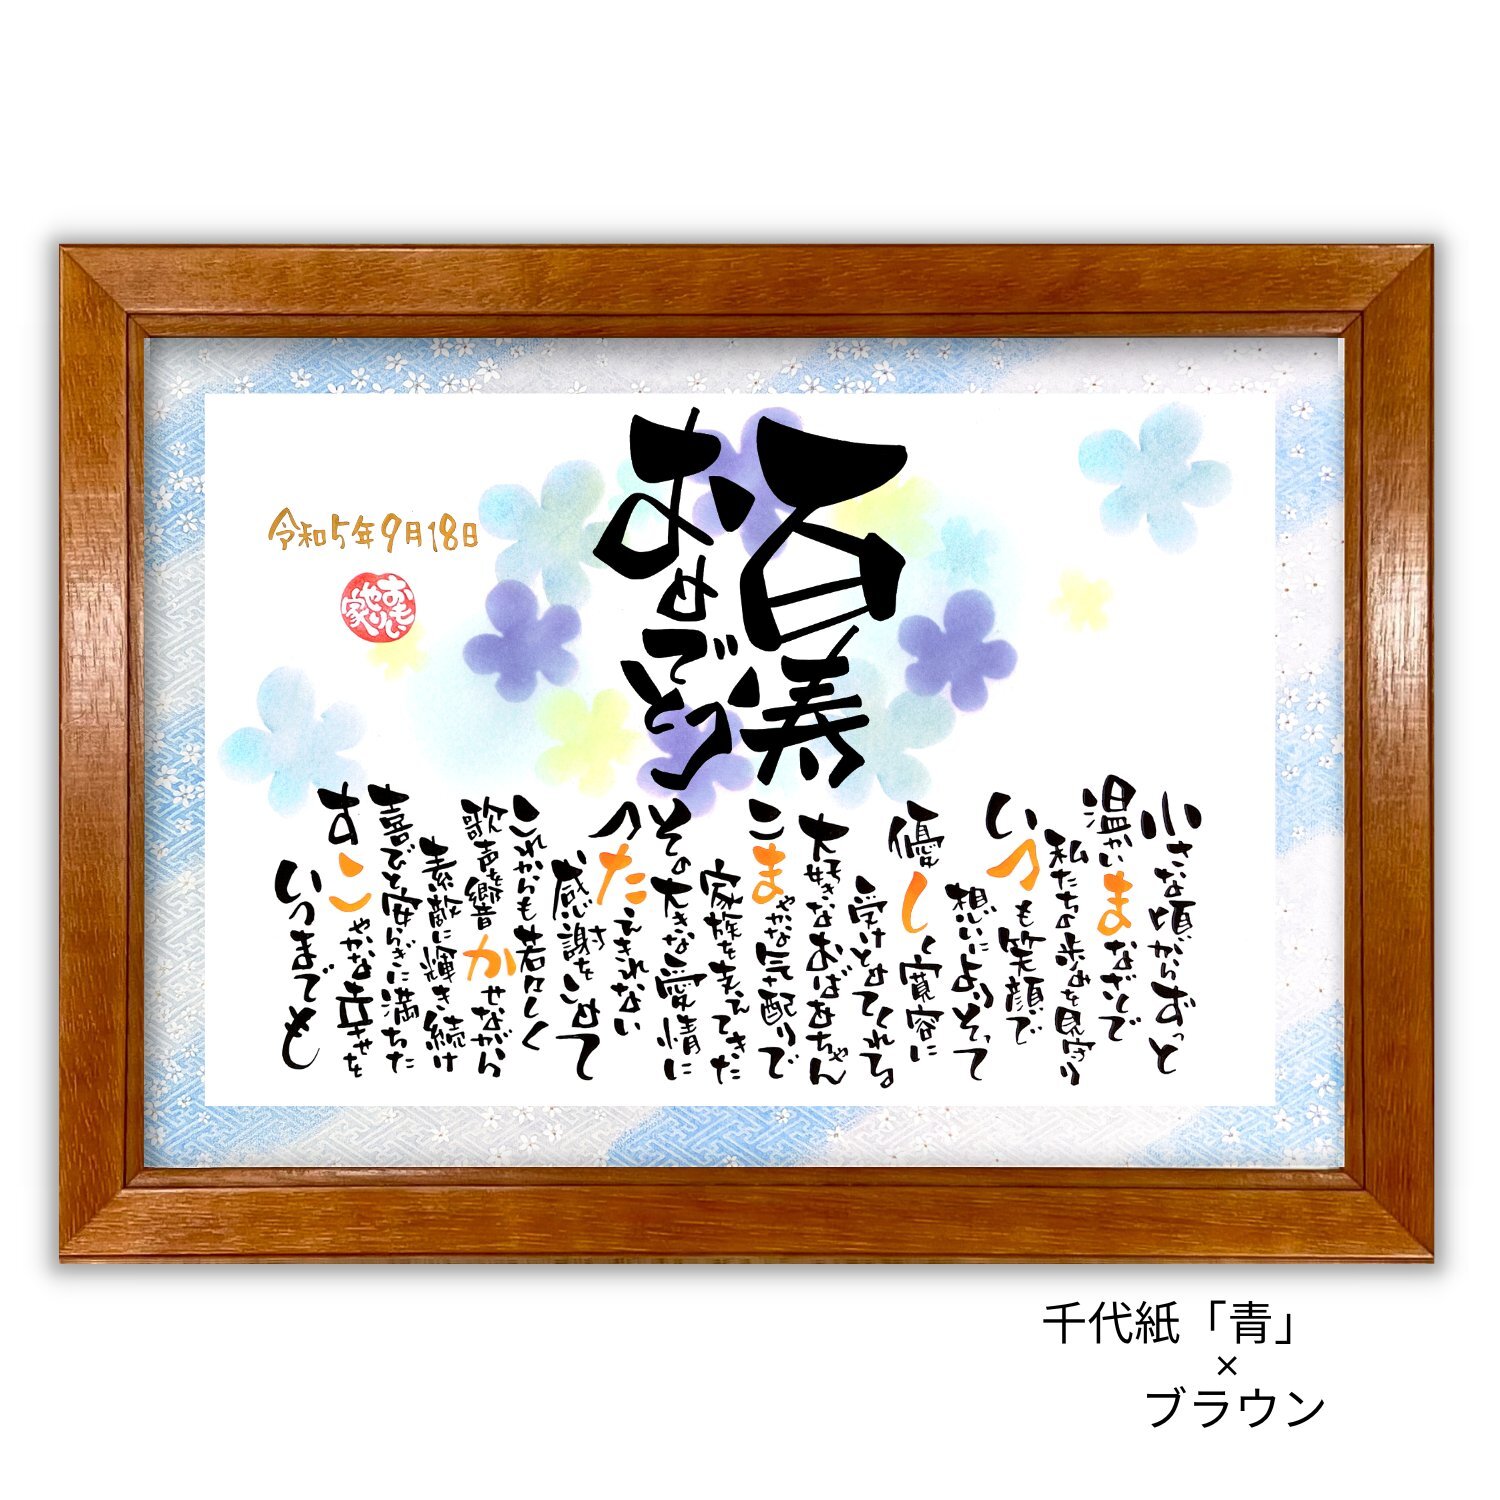 百寿
おめでとう
令和5年9月18日
おもいやり家
小さな頃からずっと
温かいまなざしで
私たちの歩みを見守り
いつも笑顔で
想いによりそって
優しく寛容に
受けとめてくれる
大好きなおばあちゃん
こまやかな気配りで
家族を支えてきた
その大きな愛情に
つたえきれない
感謝をこめて
これからも若々しく
歌声を響かせながら
素敵に輝き続け
喜びと安らぎに満ちた
すこやかな幸せを
いつまでも
千代紙「青」
×
ブラウン